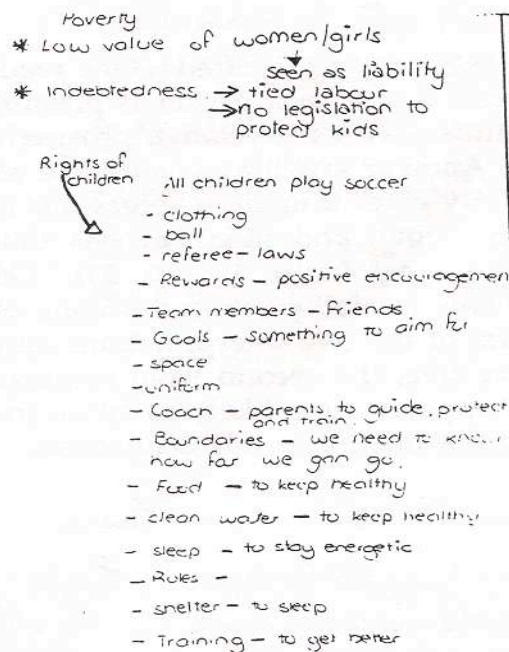 Poverty
* Low value of women/girls
seen as liability
* Indebtedness → tied labour
→ no legislation to
protect kids
Rights of
children
All children play soccer
- clothing
- ball
- referee - laws
- Rewards - positive encouragement
- Team members - friends
- Goals - something to aim for
- space
- uniform
- Coach - parents to guide, protect
and train.
- Boundaries - we need to know
how far we can go.
- Food - to keep healthy
- clean water - to keep healthy
- sleep - to stay energetic
- Rules -
- shelter - to sleep
- Training - to get better